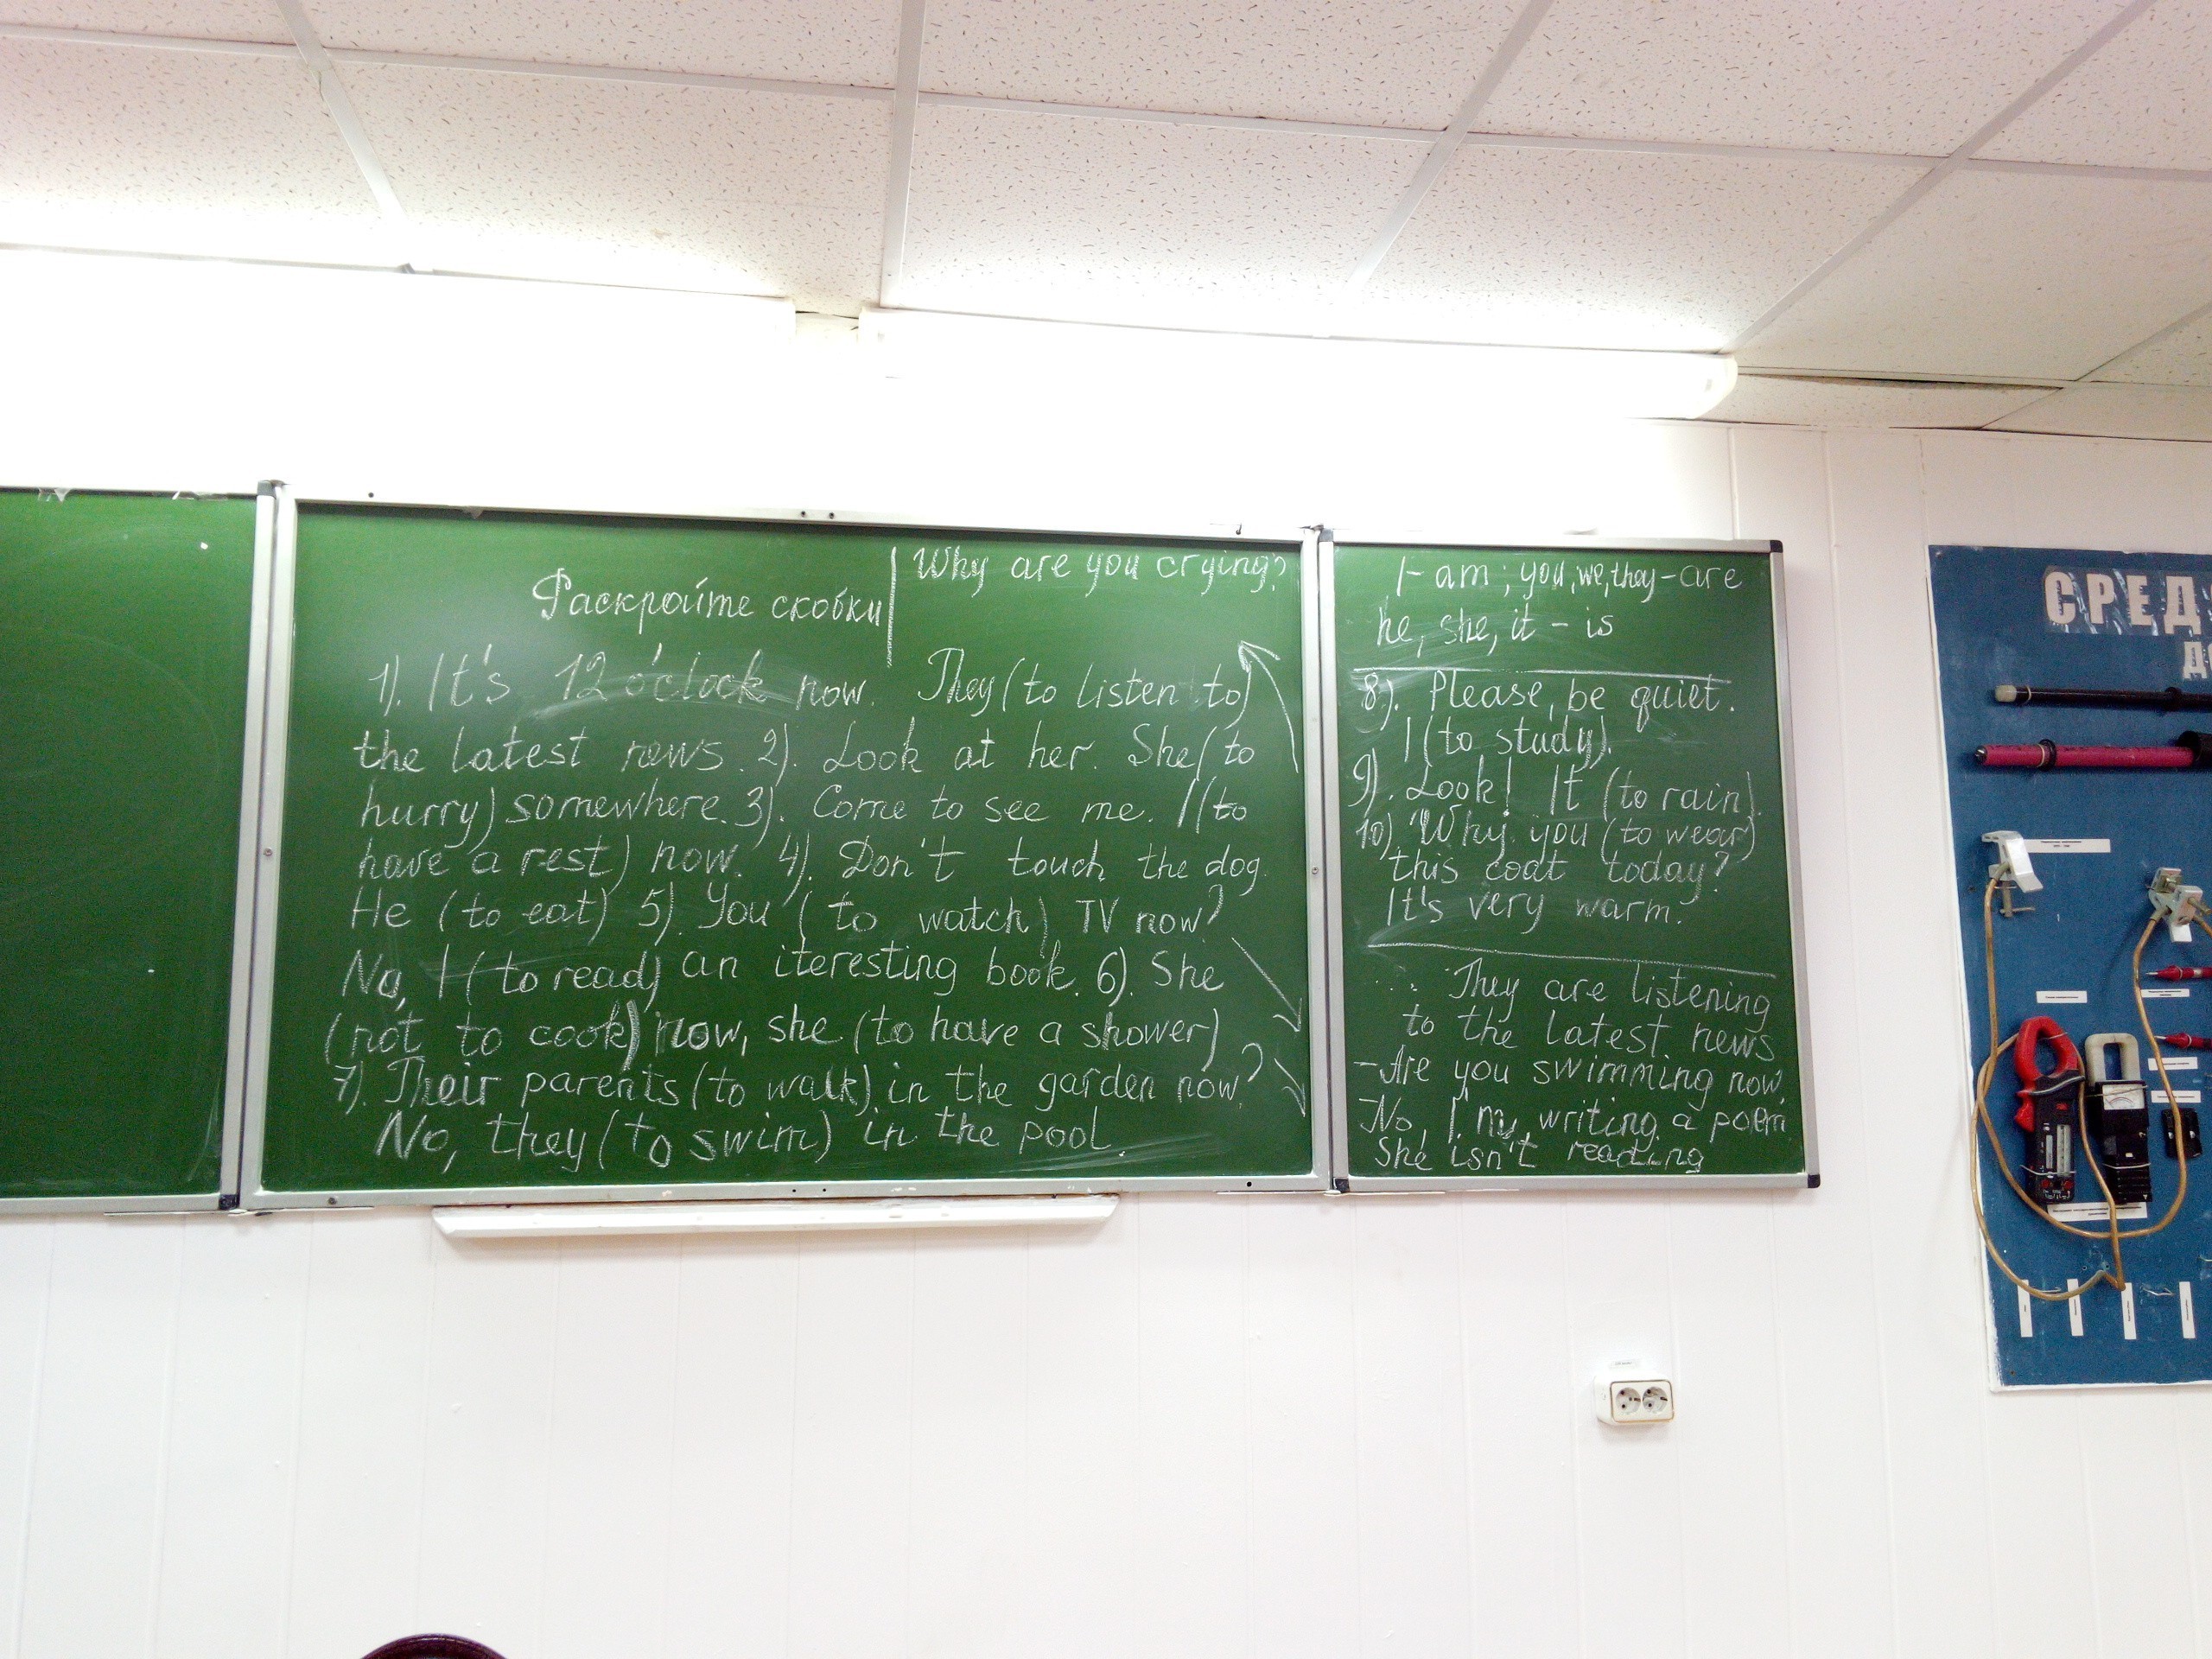 Раскройте скобки
Why are you crying?
1). It's 12 o'clock now. They (to listen to)
the latest news. 2). Look at her. She (to
hurry) somewhere. 3). Come to see me. I (to
have a rest) now. 4). Don't touch the dog.
He (to eat) 5). You (to watch) TV now?
No, I (to read) an iteresting book. 6). She
(not to cook) now, she (to have a shower)
7). Their parents (to walk) in the garden now?
No, they (to swim) in the pool.
I - am; you, we, they - are
he, she, it - is
8). Please, be quiet.
I (to study).
9). Look! It (to rain).
10). Why you (to wear)
this coat today?
It's very warm.
... They are listening
to the latest news
- Are you swimming now.
No, I'm writing a poem
She isn't reading
СРЕД